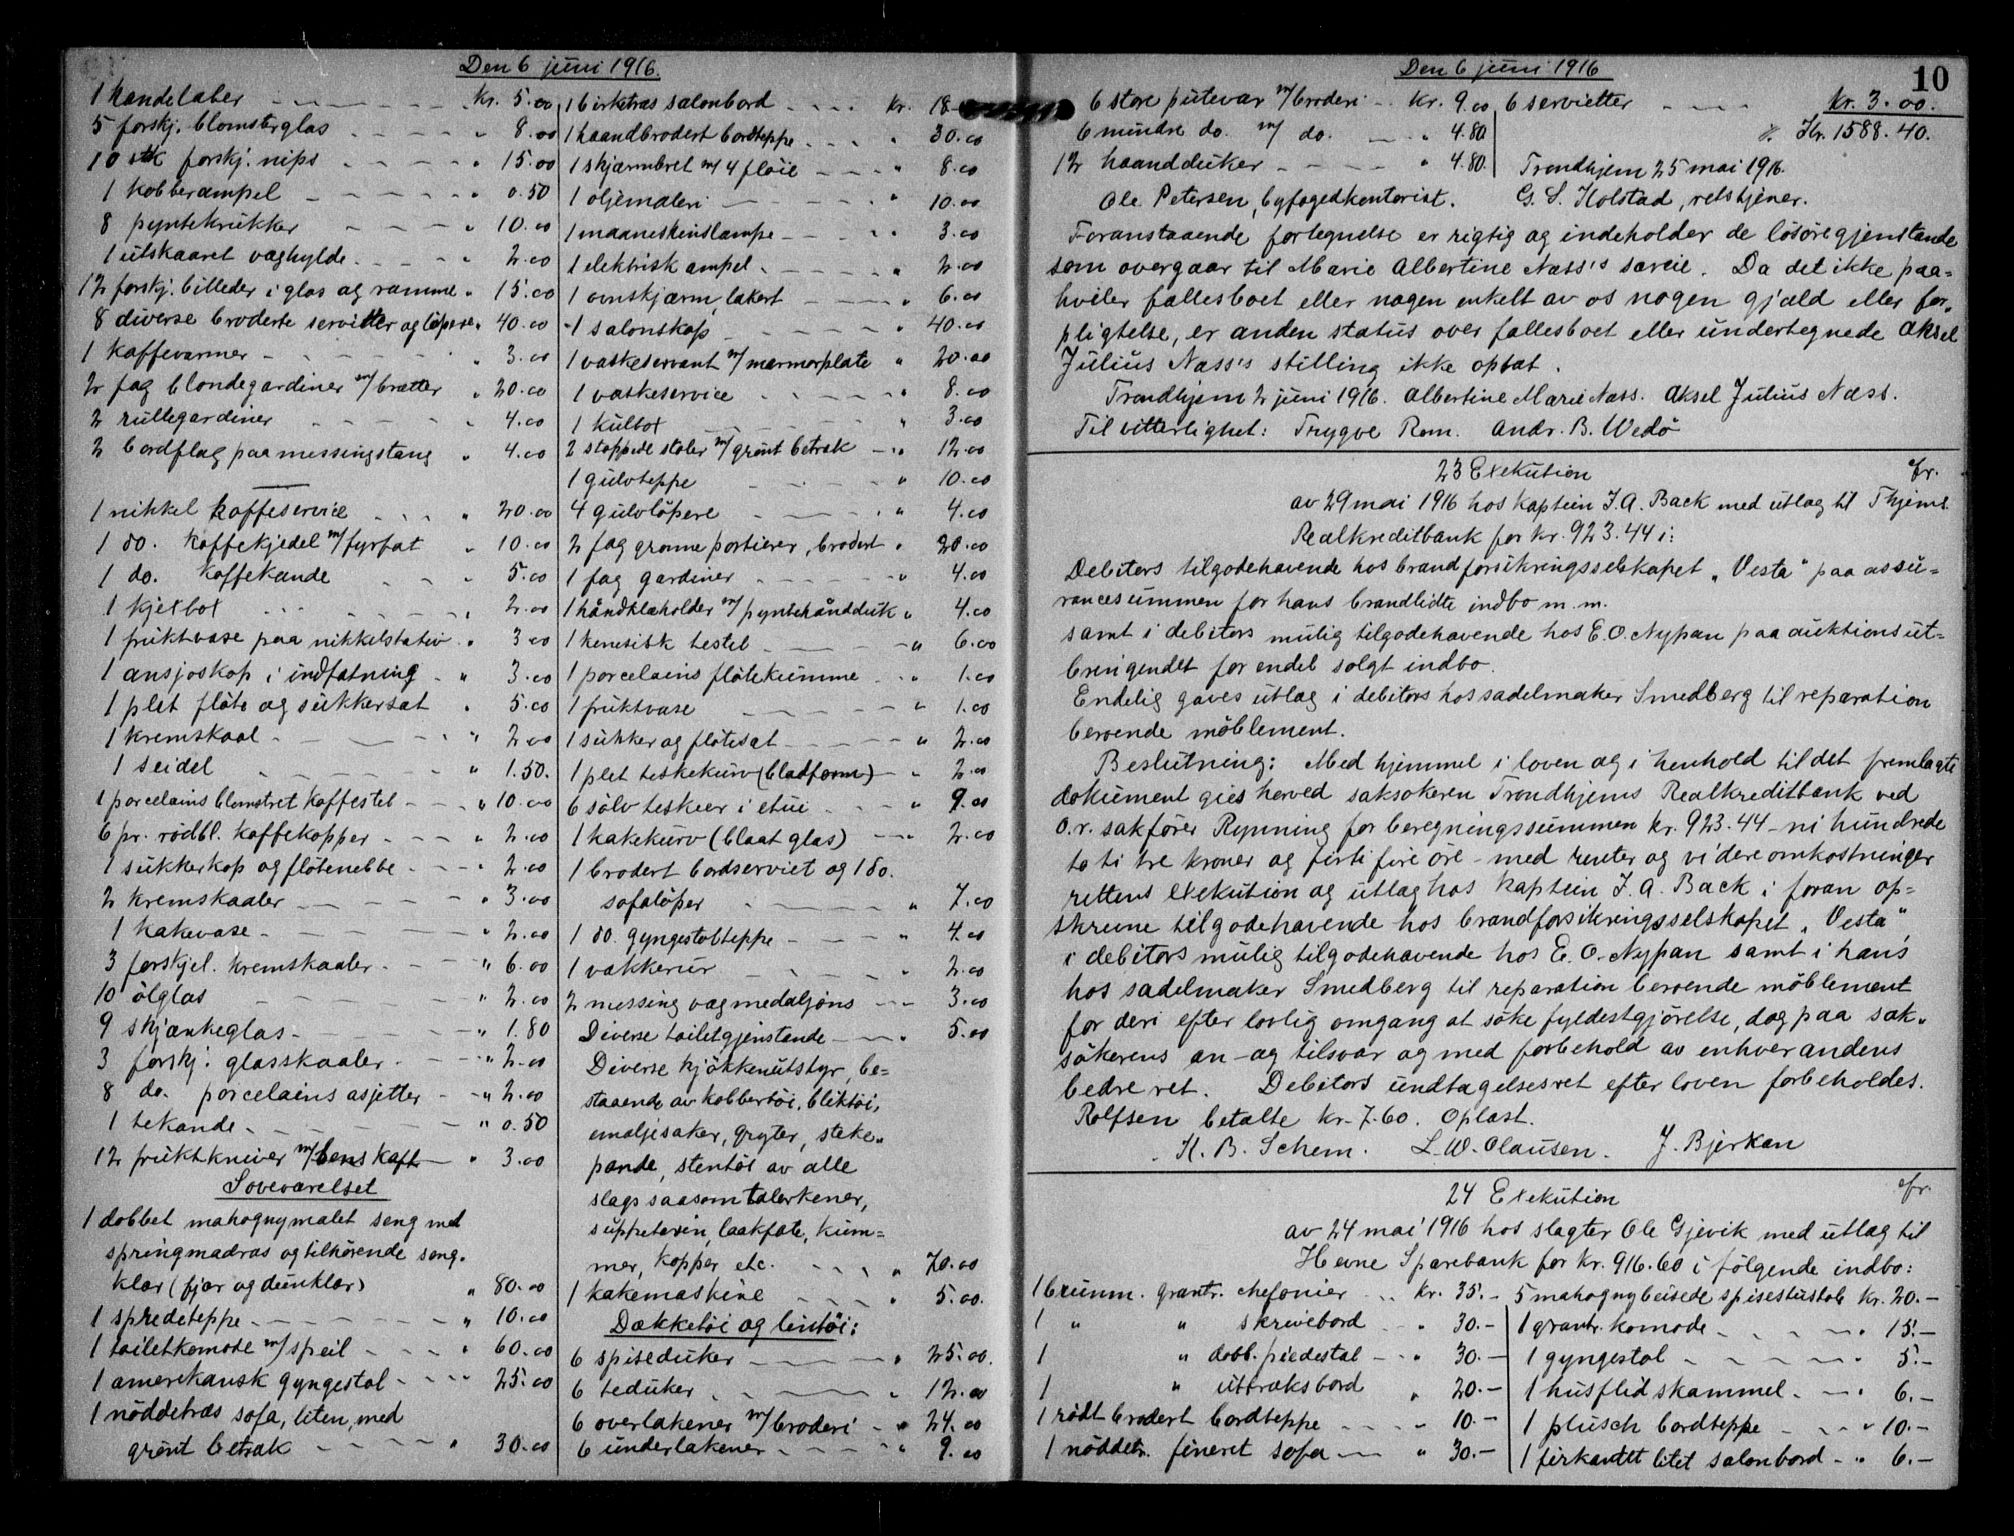 Den 6 juni 1916.
1 kandelaber kr. 5.00
5 forskj. blomsterglas " 8.00
10 stk forskj. nips " 15.00
1 kobberampel " 0.50
8 pyntekrukker " 10.00
1 utskaaret væghylde " 2.00
12 forskj. billeder i glas og ramme " 15.00
8 diverse broderte servitter og løpere " 40.00
1 kaffevarmer " 3.00
2 fag blondegardiner m/brætter " 20.00
2 rullegardiner " 4.00
2 bordflag paa messingstang " 4.00
1 nikkel kaffeservice " 20.00
1 do. kaffekjedel m/fyrfat " 10.00
1 do. kaffekande " 5.00
1 kjexbox " 2.00
1 fruktvase paa nikkelstativ " 3.00
1 ansjoskop i indfatning " 3.00
1 plet fløte og sukkersat " 5.00
1 kremskaal " 2.00
1 seidel " 1.50.
1 porcelains blomstret kaffestel " 10.00
6 pr. rødbl. kaffekopper " 2.00
1 sukkerkop og fløtenebbe " 2.00
2 kremskaaler " 3.00
1 kakevase " 2.00
3 forskjel. kremskaaler " 6.00
10 ølglas " 2.00
9 skjænkeglas " 1.80
3 forskj. glasskaaler " 2.00
8 do. porcelains asjetter " 2.00
1 tekande " 0.50
12 fruktkniver m/benskaft " 3.00
Soveværelset
1 dobbet mahognymalet seng med
springmadras og tilhørende seng-
klær (fjær og dunklær) " 80.00
1 spredeteppe " 10.00
1 toiletkomode m/speil " 60.00
1 amerikansk gyngestol " 25.00
1 nøddetræs sofa, liten, med
grønt betræk " 30.00
1 birketræs salonbord kr. 18
1 haandbrodert bordteppe " 30.00
1 skjærmbret m/4 fløie " 8.00
1 oljemaleri " 10.00
1 maaneskinslampe " 3.00
1 elektrisk ampel " 2.00
1 ovnskjærm, lakert " 6.00
1 salonskap " 40.00
1 vaskeservant m/marmorplate " 20.00
1 vaskeservice " 8.00
1 kulbox " 3.00
2 stoppede stoler m/grønt betræk " 12.00
1 gulvteppe " 10.00
4 gulvløpere " 4.00
2 fag grønne portierer, brodert " 20.00
1 fag gardiner " 4.00
1 håndklæholder m/pyntehåndduk " 4.00
1 kinesisk testel " 6.00
1 porcelains fløtekumme " 1.00
1 fruktvase " 1.00
1 sukker og fløtesat " 2.00
1 plet teskekurv (bladform) " 2.00
6 sølvteskeer i etui " 9.00
1 kakekurv (blaat glas) 2.00
1 brodert bordserviet og 1 do.
sofaløper " 7.00
1 do. gyngestolteppe " 4.00
1 vækkerur " 2.00
2 messing vægmedaljøns 3.00
Diverse toiletgjenstande " 5.00
Diverse kjøkkenutstyr, be=
staaende av kobbertøi, bliktøi,
emaljesaker, gryter, steke-
pande, stentøi av alle
slags saasom talerkener,
suppeterin, laakfate, kum=
mer, kopper etc. " 70.00
1 kakemaskine " 5.00.
Dækketøi og lintøi:
6 spiseduker " 25.00.
6 teduker " 12.00
6 overlakener m/broderi " 24.00
6 underlakener " 9.00
Den 6 juni 1916
10
6 store putevar m/broderi kr. 9.00
6 mindre do. m/ do. " 4.80
12 haandduker " 4.80.
6 servietter kr. 3.00.
Kr. 1588.40.
Trondhjem 25 mai 1916.
Ole Petersen, byfogedkontorist. G. S. Holstad, retsbetjener.
Foranstaaende fortegnelse er rigtig og indeholder de løsøregjenstande
som overgaar til Marie Albertine Næss's særeie. Da det ikke paa=
hviler fællesboet eller nogen enkelt av os nogen gjæld eller for-
pligtelse, er anden status over fællesboet eller undertegnede Aksel
Julius Næss's stilling ikke optat.
Trondhjem 2 juni 1916. Albertine Marie Næss. Aksel Julius Næss.
Til vitterlighet: Trygve Rom. Andr. B. Wedø
23 Exekution fr.
av 29 mai 1916 hos kaptein J. A. Back med utlæg til Thjems
Realkreditbank for kr. 923.44 i:
Debitors tilgodehavende hos brandforsikringsselskapet „Vesta" paa assu=
rancesummen for hans brandlidte indbo m.m.
samt i debitors mulig tilgodehavende hos E. O. Nypan paa auktionsut=
bringendet for endel solgt indbo.
Endelig gaves utlæg i debitors hos sadelmaker Smedberg til reparation
beroende møblement.
Beslutning: Med hjemmel i loven og i henhold til det fremlagte
dokument gies herved saksøkeren Trondhjems Realkreditbank ved
o.r. sakfører Rynning for beregningssummen kr. 923.44 - ni hundrede
to ti tre kroner og firti fire øre - med renter og videre omkostninger
rettens exekution og utlæg hos kaptein J. A. Back i foran op=
skrevne tilgodehavende hos brandforsikringsselskapet „Vesta",
i debitors mulig tilgodehavende hos E. O. Nypan samt i hans
hos sadelmaker Smedberg til reparation beroende møblement
for deri efter lovlig omgang at søke fyldestgjørelse, dog paa sak-
søkerens an- og tilsvar og med forbehold av enhver andens
bedre ret. Debitors undtagelsesret efter loven forbeholdes.
Rolfsen betalte kr. 7.60. Oplæst.
H. B. Schem. L. W. Clausen. J. Bjerkan
24 Exekution fr.
av 24 mai 1916 hos slagter Ole Gjevik med utlæg til
Hevne Sparebank for kr. 916.60 i følgende indbo:
1 brunm. grantr. chefonier kr. 35.-
1 " " skrivebord " 30.-
1 " dobb. piedestal " 30.-
1 " uttræksbord " 20.-
1 rødt brodert bordteppe " 10.-
1 nøddetr. fineret sofa " 30.-
5 mahognybeisede spisestustole kr. 20.-
1 grantr. komode " 15.-
1 gyngestol " 5.-
1 husflidskammel " 6.-
1 plusch bordteppe " 10.-
1 firkantet litet salonbord " 6.-